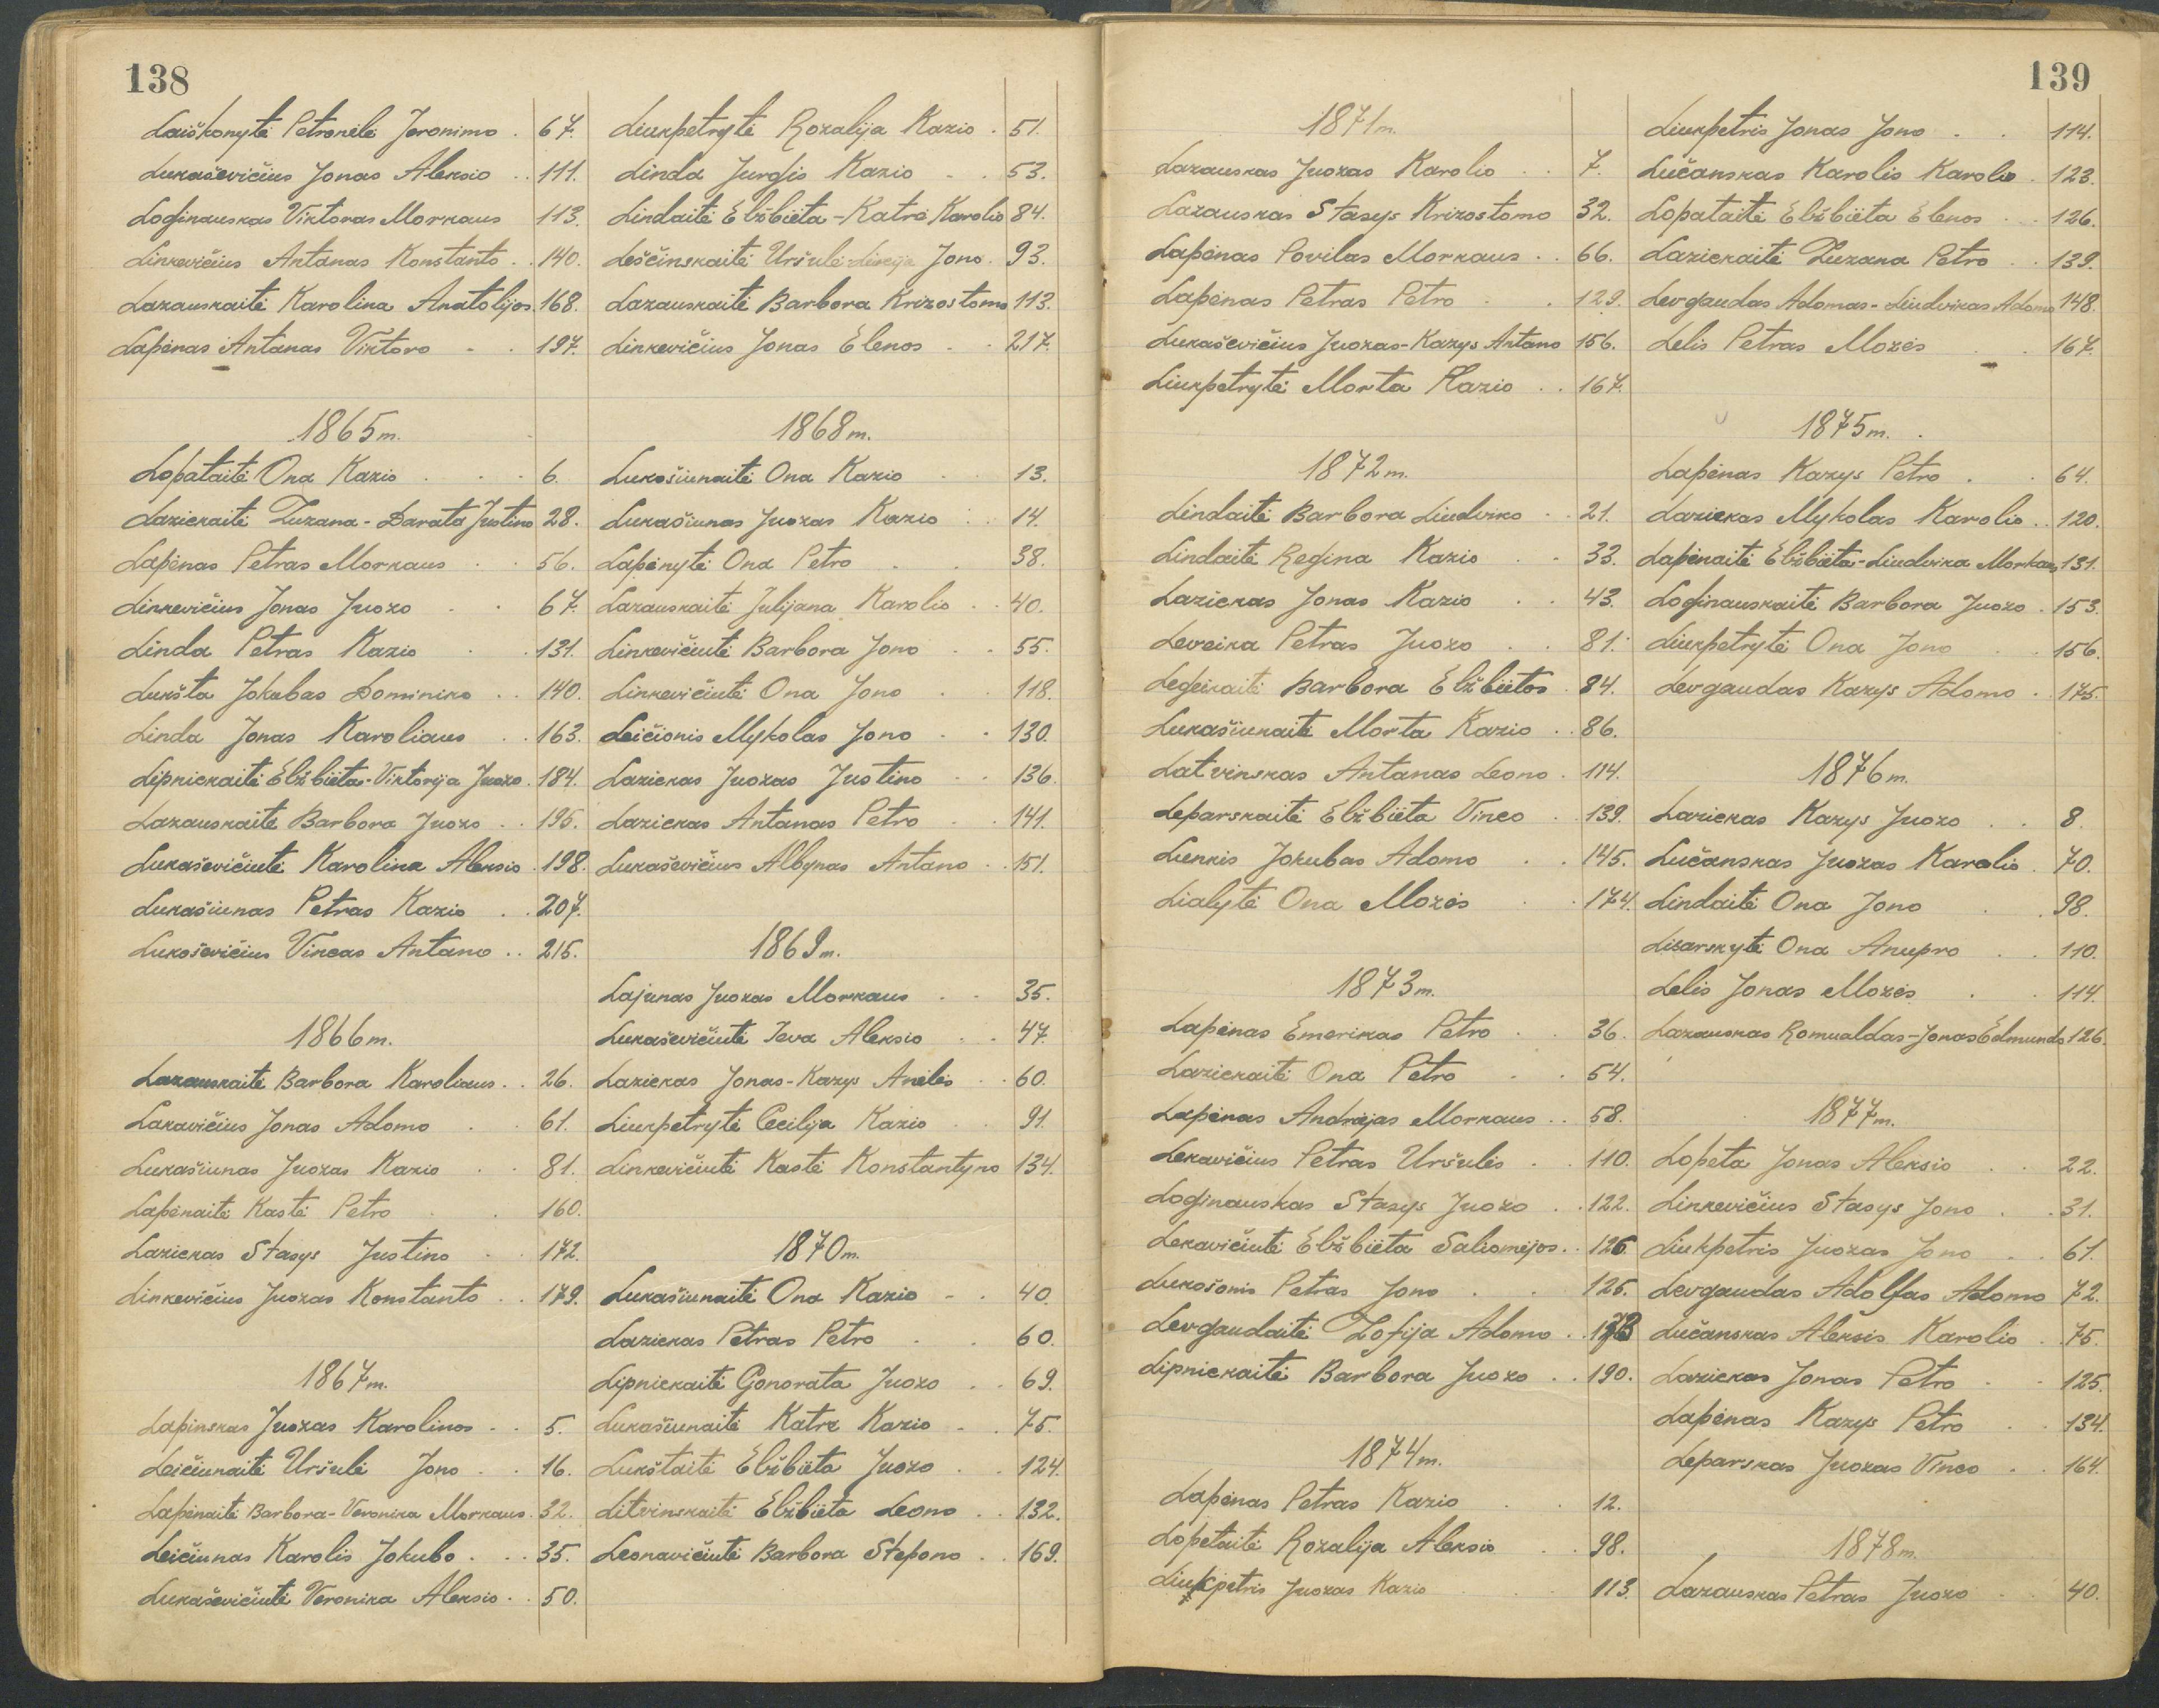 138
Laiškonytė Petronėlė Jeronimo . 67.
Lukaševičius Jonas Aleksio . . 111.
Loginauskas Viktoras Morkaus 113.
Linkevičius Antanas Konstanto . . 140.
Lazauskaitė Karolina Anatolijos. 168.
Lapėnas Antanas Viktoro - . 197.
1865 m.
Lopataitė Ona Kazio . . . 6.
Lazickaitė Zuzana - Darata Justino 28.
Lapėnas Petras Morkaus . . 56.
Linkevičius Jonas Juozo . . 67.
Linda Petras Kazio . . 131.
Lukšta Jokubas Dominiko . . 140.
Linda Jonas Karoliaus . . 163.
Lipnickaitė Elžbiėta-Viktorija Juozo . 184.
Lazauskaitė Barbora Juozo . . 195.
Lukaševičiutė Karolina Aleksio . 198.
Lukašiunas Petras Kazio . . 207.
Lukoševičius Vincas Antano . . 215.
1866 m.
Lazauskaitė Barbora Karoliaus . . 26.
Lakavičius Jonas Adomo . . 61.
Lukašiunas Juozas Kazio . . 81.
Lapėnaitė Kastė Petro . . 160.
Lazickas Stasys Justino . . 172.
Linkevičius Juozas Konstanto . . 179.
1867 m.
Lapinskas Juozas Karolinos . . 5.
Leičiunaitė Uršulė Jono . . 16.
Lapėnaitė Barbora-Veronika Morkaus . 32.
Leičiunas Karolis Jokubo . . . 35.
Lukaševičiutė Veronika Aleksio . . 50.
Liukpetrytė Rozalija Kazio . 51.
Linda Jurgis Kazio - . 53.
Lindaitė Elžbiėta-Katrė Karolio 84.
Leščinskaitė Uršulė- Jono . 93.
Lazauskaitė Barbora Krizostomo 113.
Linkevičius Jonas Elenos - . 217.
1868 m.
Lukošiunaitė Ona Kazio . . 13.
Lukašiunas Juozas Kazio . . 14.
Lapėnytė Ona Petro . . 38.
Lazauskaitė Julijana Karolio . . 40.
Linkevičiutė Barbora Jono . . 55.
Linkevičiutė Ona Jono . . 118.
Leičionis Mykolas Jono - . 130.
Lazickas Juozas Justino - . 136.
Lazickas Antanas Petro . . 141.
Lukaševičius Albynas Antano . . 151.
1869 m.
Lajunas Juozas Morkaus . . 35.
Lukaševičiutė Ieva Aleksio . . 47.
Lazickas Jonas-Kazys Anėlės . . 60.
Liukpetrytė Cecilija Kazio . . 91.
Linkevičiutė Kastė Konstantyno 134.
1870 m.
Lukašiunaitė Ona Kazio - . 40.
Lazickas Petras Petro . . 60.
Lipnickaitė Gonorata Juozo . . 69.
Lukašiunaitė Katrė Kazio - . 75.
Lukštaitė Elžbiėta Juozo . . 124.
Litvinskaitė Elžbiėta Leono . . 132.
Leonavičiutė Barbora Stepono . . 169.
139
1871 m.
Lazauskas Juozas Karolio . . 7.
Lazauskas Stasys Krizostomo 32.
Lapėnas Povilas Morkaus . . 66.
Lapėnas Petras Petro . . 129.
Lukaševičius Juozas-Kazys Antano 156.
Liukpetrytė Morta Kazio . . 167.
1872 m.
Lindaitė Barbora Liudviko . . 21.
Lindaitė Regina Kazio . . 33.
Lazickas Jonas Kazio . . 43.
Leveika Petras Juozo . . 81.
Legeikaitė Barbora Elžbiėtos . 84.
Lukašiunaitė Morta Kazio . . 86.
Latvinskas Antanas Leono . 114.
Leparskaitė Elžbiėta Vinco . 139.
Lunkis Jokubas Adomo . . 145.
Lialytė Ona Mozės . . 174.
1873 m.
Lapėnas Emerikas Petro . . 36.
Lazickaitė Ona Petro . . 54.
Lapėnas Andrėjas Morkaus . . 58.
Lekavičius Petras Uršulės . . 110.
Loginauskas Stasys Juozo . . 122.
Lekavičiutė Elžbiėta Saliomėjos . . 126
Lukošonis Petras Jono . . 126.
Levgaudaitė Zofija Adomo . .
Lipnickaitė Barbora Juozo . . 190.
1874 m.
Lapėnas Petras Kazio . . 12.
Lopetaitė Rozalija Aleksio . . 98.
Liukpetris Juozas Kazio . . 113.
Liukpetris Jonas Jono . . 114.
Lučanskas Karolis Karolio . 123.
Lopataitė Elžbiėta Elenos . . 126.
Lazickaitė Zuzana Petro . . 139.
Levgaudas Adomas-Liudvikas Adomo 148.
Lelis Petras Mozės . . 167.
1875 m.
Lapėnas Kazys Petro . . 64.
Lazickas Mykolas Karolio . . 120.
Lapėnaitė Elžbiėta-Liudvika Morkaus 131.
Loginauskaitė Barbora Juozo . 153.
Liukpetrytė Ona Jono . . 156.
Levgaudas Kazys Adomo . . 175.
1876 m.
Lazickas Kazys Juozo . . 8.
Lučanskas Juozas Karolio . 70.
Lindaitė Ona Jono . . 98.
Lisarskytė Ona Anupro . . 110.
Lelis Jonas Mozės . . 114.
Lazauskas Romualdas-Jonas Edmundo 126.
1877 m.
Lopeta Jonas Aleksio . . 22.
Linkevičius Stasys Jono . . 31.
Liukpetris Juozas Jono . . 61.
Levgaudas Adolfas Adomo 72.
Lučanskas Aleksis Karolio . 75.
Lazickas Jonas Petro . . 125.
Lapėnas Kazys Petro . . 134.
Leparskas Juozas Vinco . . 164.
1878 m.
Lazauskas Petras Juozo . . 40.